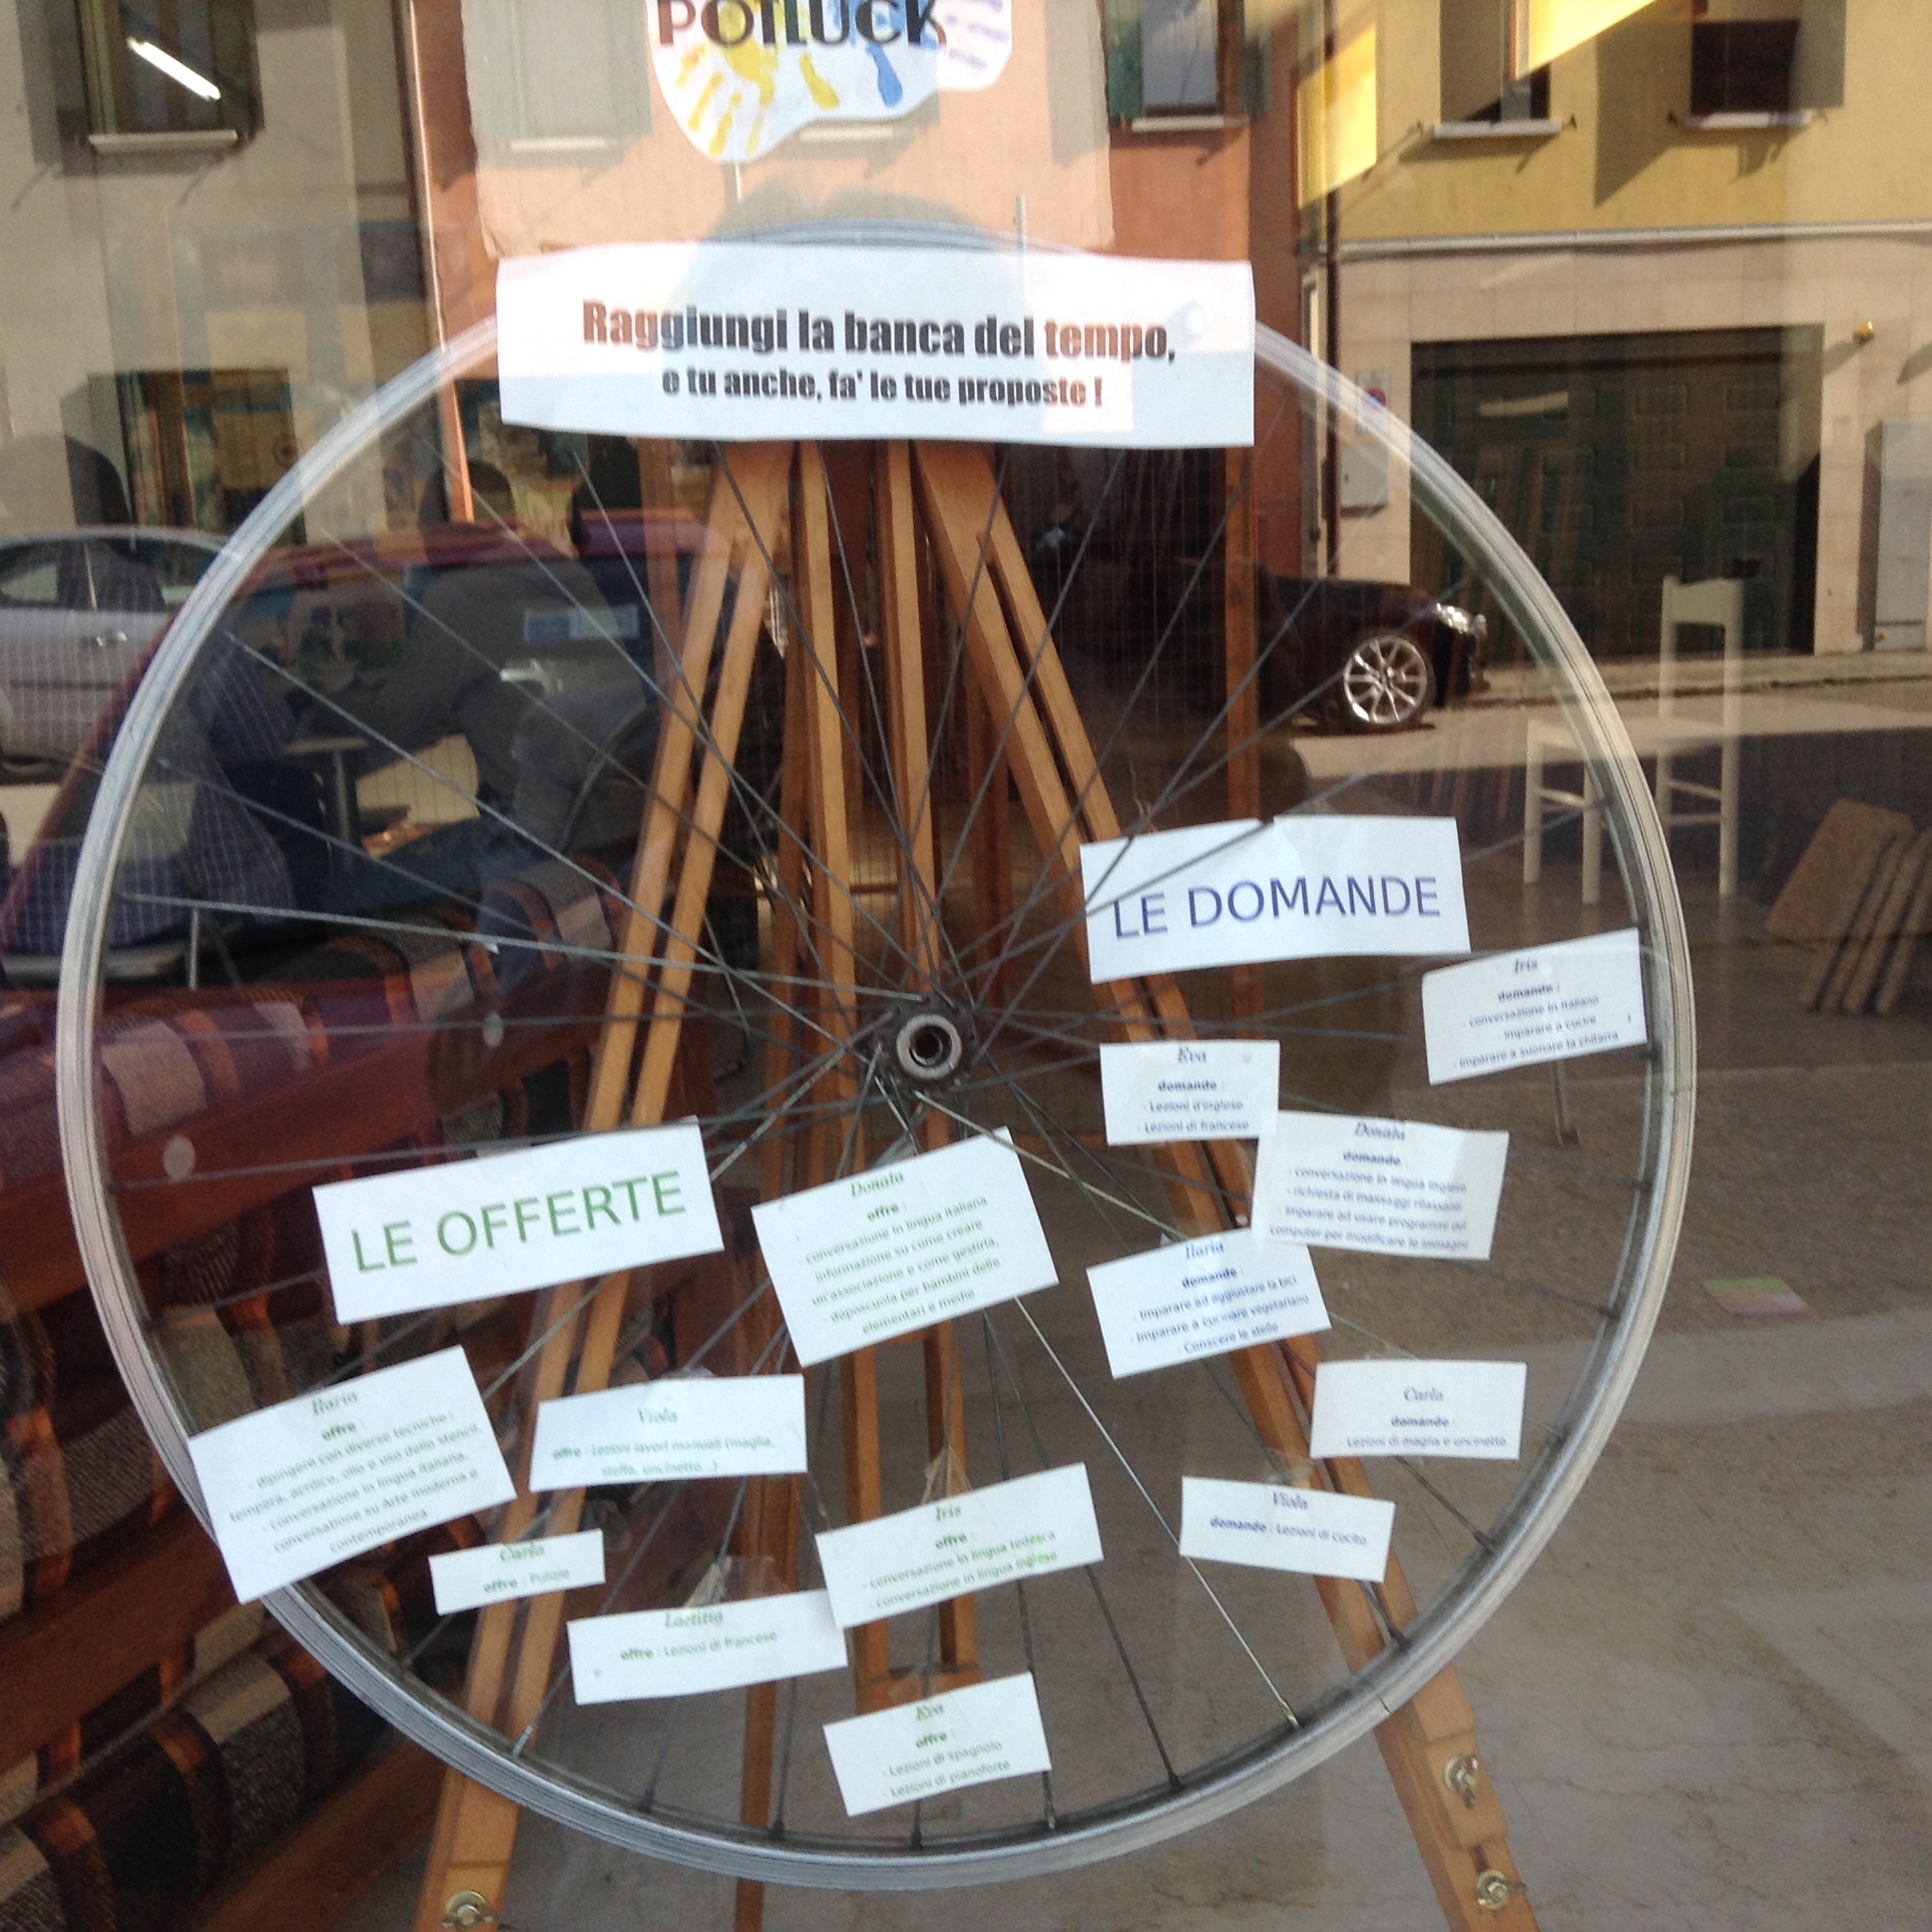 POTLUCK
Raggiungi la banca del tempo,
e tu anche, fa' le tue proposte !
LE DOMANDE
Iris
domande :
- conversazione in italiano
- imparare a cucire
- imparare a suonare la chitarra
Eva
domande :
- Lezioni d'inglese
- Lezioni di francese
Donata
domande :
- conversazione in lingua inglese
- richiesta di massaggi rilassanti
- imparare ad usare programmi del
computer per modificare le immagini
Ilaria
domande :
- Imparare ad aggiustare la bici
- Imparare a cucinare vegetariano
- Conscere le stelle
Carla
domande :
- Lezioni di maglia e uncinetto
Viola
domande : Lezioni di cucito
LE OFFERTE
Donata
offre :
- conversazione in lingua italiana
- informazione su come creare
un'associazione e come gestirla,
- doposcuola per bambini delle
elementari e medie
Ilaria
offre :
- dipingere con diverse tecniche :
tempera, acrilico, olio e uso dello stencil,
- conversazione in lingua italiana,
- conversatione su Arte moderna e
contemporanea
Viola
offre : Lezioni lavori manuali (maglia,
stoffa, uncinetto...)
Carla
offre : Pulizie
Iris
offre :
- conversazione in lingua tedesca
- conversazione in lingua inglese
Laetitia
offre : Lezioni di francese
Eva
offre :
- Lezioni di spagnolo
- Lezioni di pianoforte